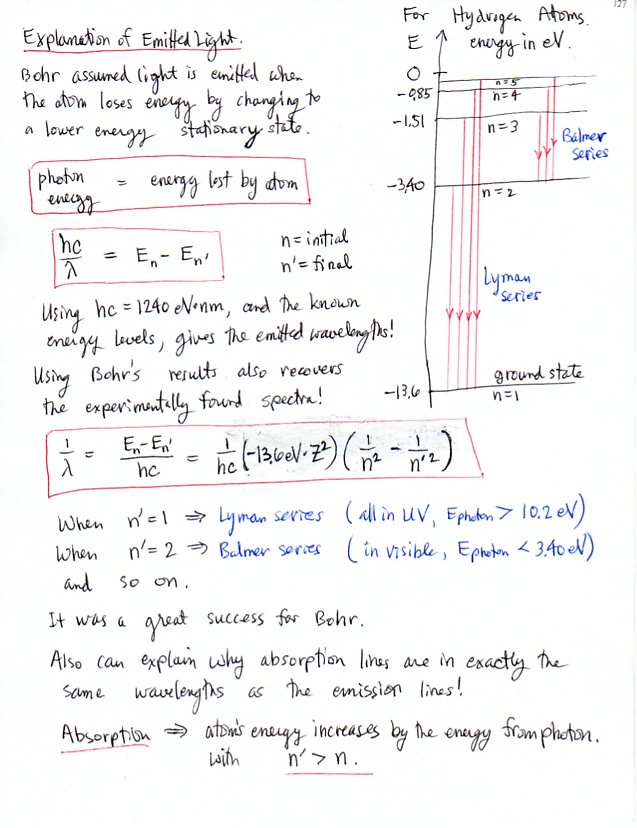 127
For Hydrogen Atoms.
Explanation of Emitted Light.
E energy in eV.
Bohr assumed light is emitted when
the atom loses energy by changing to
a lower energy stationary state.
0
n=5
-0.85
n=4
-1.51
n=3
Balmer
series
-3.40
n=2
Lyman
series
ground state
-13.6
n=1
photon
energy = energy lost by atom
hc/λ = En - En'
n = initial
n' = final
Using hc = 1240 eV·nm, and the known
energy levels, gives the emitted wavelengths!
Using Bohr's results also recovers
the experimentally found spectra!
1/λ = (En-En')/hc = 1/hc (-13.6eV·Z²)(1/n² - 1/n'²)
When n'=1 ⇒ Lyman series (all in UV, Ephoton > 10.2 eV)
When n'=2 ⇒ Balmer series (in visible, Ephoton < 3.40 eV)
and so on.
It was a great success for Bohr.
Also can explain why absorption lines are in exactly the
same wavelengths as the emission lines!
Absorption ⇒ atom's energy increases by the energy from photon.
with n' > n.